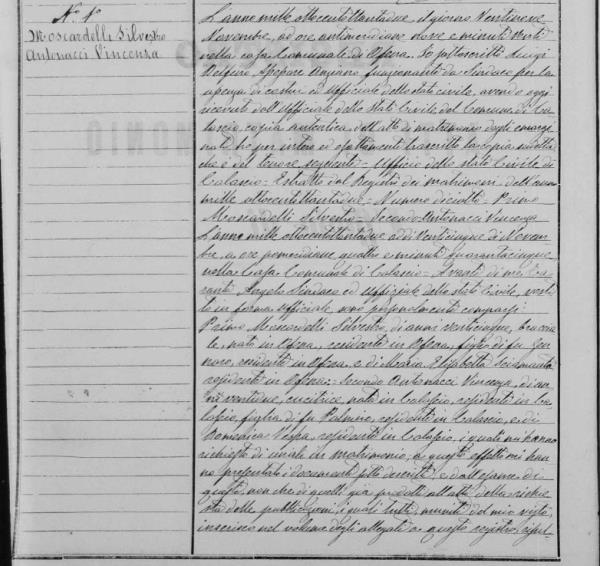 N.º 1º
Moscardelli Silvestro
Antonacci Vincenza
L'anno mille ottocentottantadue, il giorno Ventinove
Novembre, ad ore antimeridiane nove e minuti venti
nella casa Comunale di Ofena. Io sottoscritto Luigi
Delfino, Assessore Anziano funzionante da Sindaco per l'as
senza di costui ed Uffiziale dello stato civile, avendo oggi
ricevuto dall'Uffiziale dello Stato Civile del Comune di Ca
lascio, copia autentica dell'atto di matrimonio degli emargi
nati, ho per intero ed esattamente trascritto la copia suddetta
che è del tenore seguente = Ufficio dello stato Civile di
Calascio = Estratto dal Registro dei matrimoni dell'anno
mille ottocentottantadue = Numero diciotto = Primo
Moscardelli Silvestro = Secondo Antonacci Vincenza
L'anno mille ottocentottantadue addì Venticinque di Novem
bre, a ore pomeridiane quattro e minuti quarantacinque,
nella Casa Comunale di Calascio = Avanti di me
Angelo Sindaco ed Uffiziale dello stato Civile, vesti
to in forma ufficiale, sono personalmente comparsi:
Primo Moscardelli Silvestro, di anni venticinque, braccia
le, nato in Ofena, residente in Ofena, figlio di fu Gen
naro, residente in Ofena, e di Maria Elisabetta
residente in Ofena = Secondo Antonacci Vincenza, di an
ni ventidue, cucitrice, nata in Calascio, residente in Ca
lascio, figlia di fu Palmerio, residente in Calascio, e di
Domenica Vespa, residente in Calascio, i quali mi hanno
richiesto di unirli in matrimonio; a questo effetto mi han
no presentato i documenti sotto descritti, e dall'esame di
questi, non che di quelli già prodotti all'atto della richie
sta delle pubblicazioni, i quali tutti, muniti del mio visto,
inserisco nel volume degli allegati a questo registro, risul-